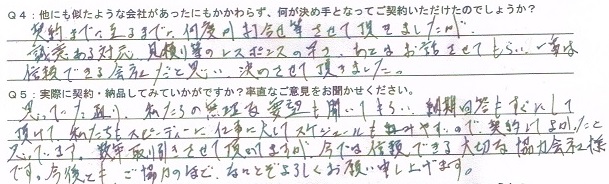 Q4：他にも似たような会社があったにもかかわらず、何が決め手となってご契約いただけたのでしょうか？
契約までに至るまでに、何度か打合せ等させて頂きましたが、
誠意ある対応、見積り等のレスポンスの早さ、あとはお話させてもらい、一番は
信頼できる会社だと思い、決めさせて頂きました。
Q5：実際に契約・納品してみていかがですか？率直なご意見をお聞かせください。
思っていた通り、私たちの無理な要望も聞いてもらい、納期回答もすぐにして
頂けて、私たちもスピーディーに仕事に対してスケジュールも組みやすいので、契約してよかったと
思います。数年取り引きさせて頂いてますが、今では信頼できる大切な協力会社様
です。今後とも、ご協力のほど、なにとぞよろしくお願い申し上げます。